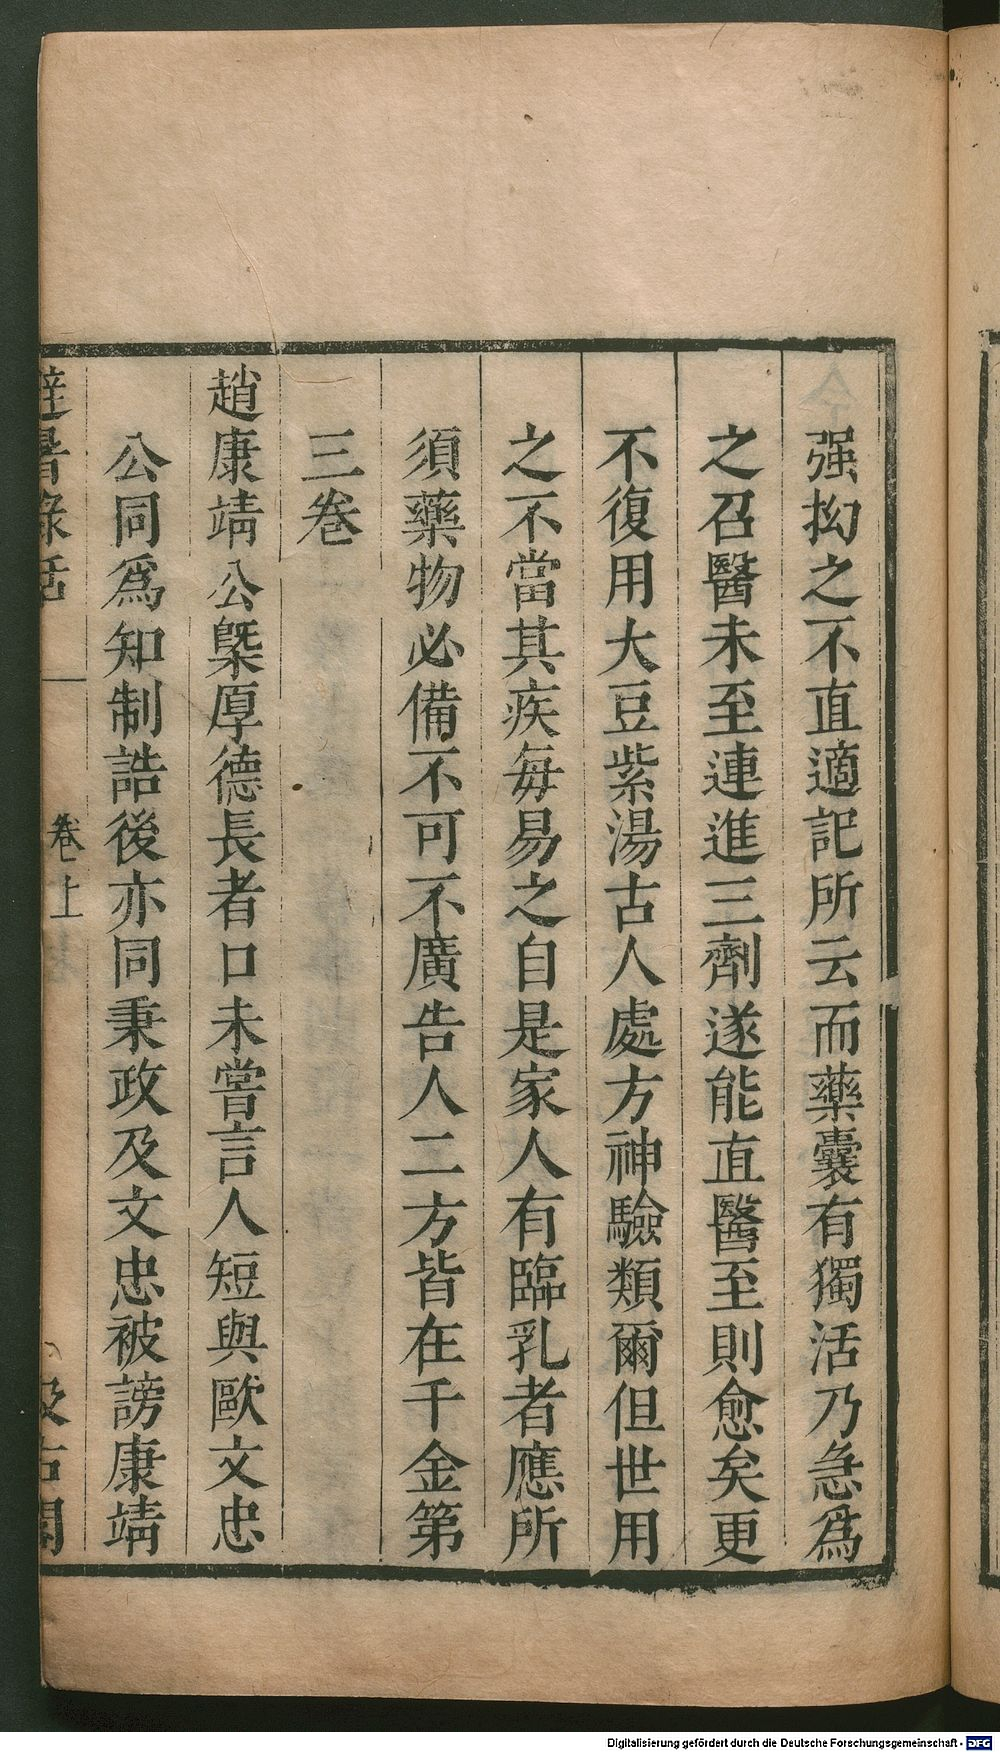 强拗之不直適記所云而藥囊有獨活乃急爲
之召醫未至連進三劑遂能直醫至則愈矣更
不復用大豆紫湯古人處方神驗類爾但世用
之不當其疾每易之自是家人有臨乳者應所
須藥物必備不可不廣告人二方皆在千金第
三卷
趙康靖公槩厚德長者口未嘗言人短與歐文忠
公同爲知制誥後亦同秉政及文忠被謗康靖
避暑錄話 卷上 汲古閣
Digitalisierung gefördert durch die Deutsche Forschungsgemeinschaft - DFG